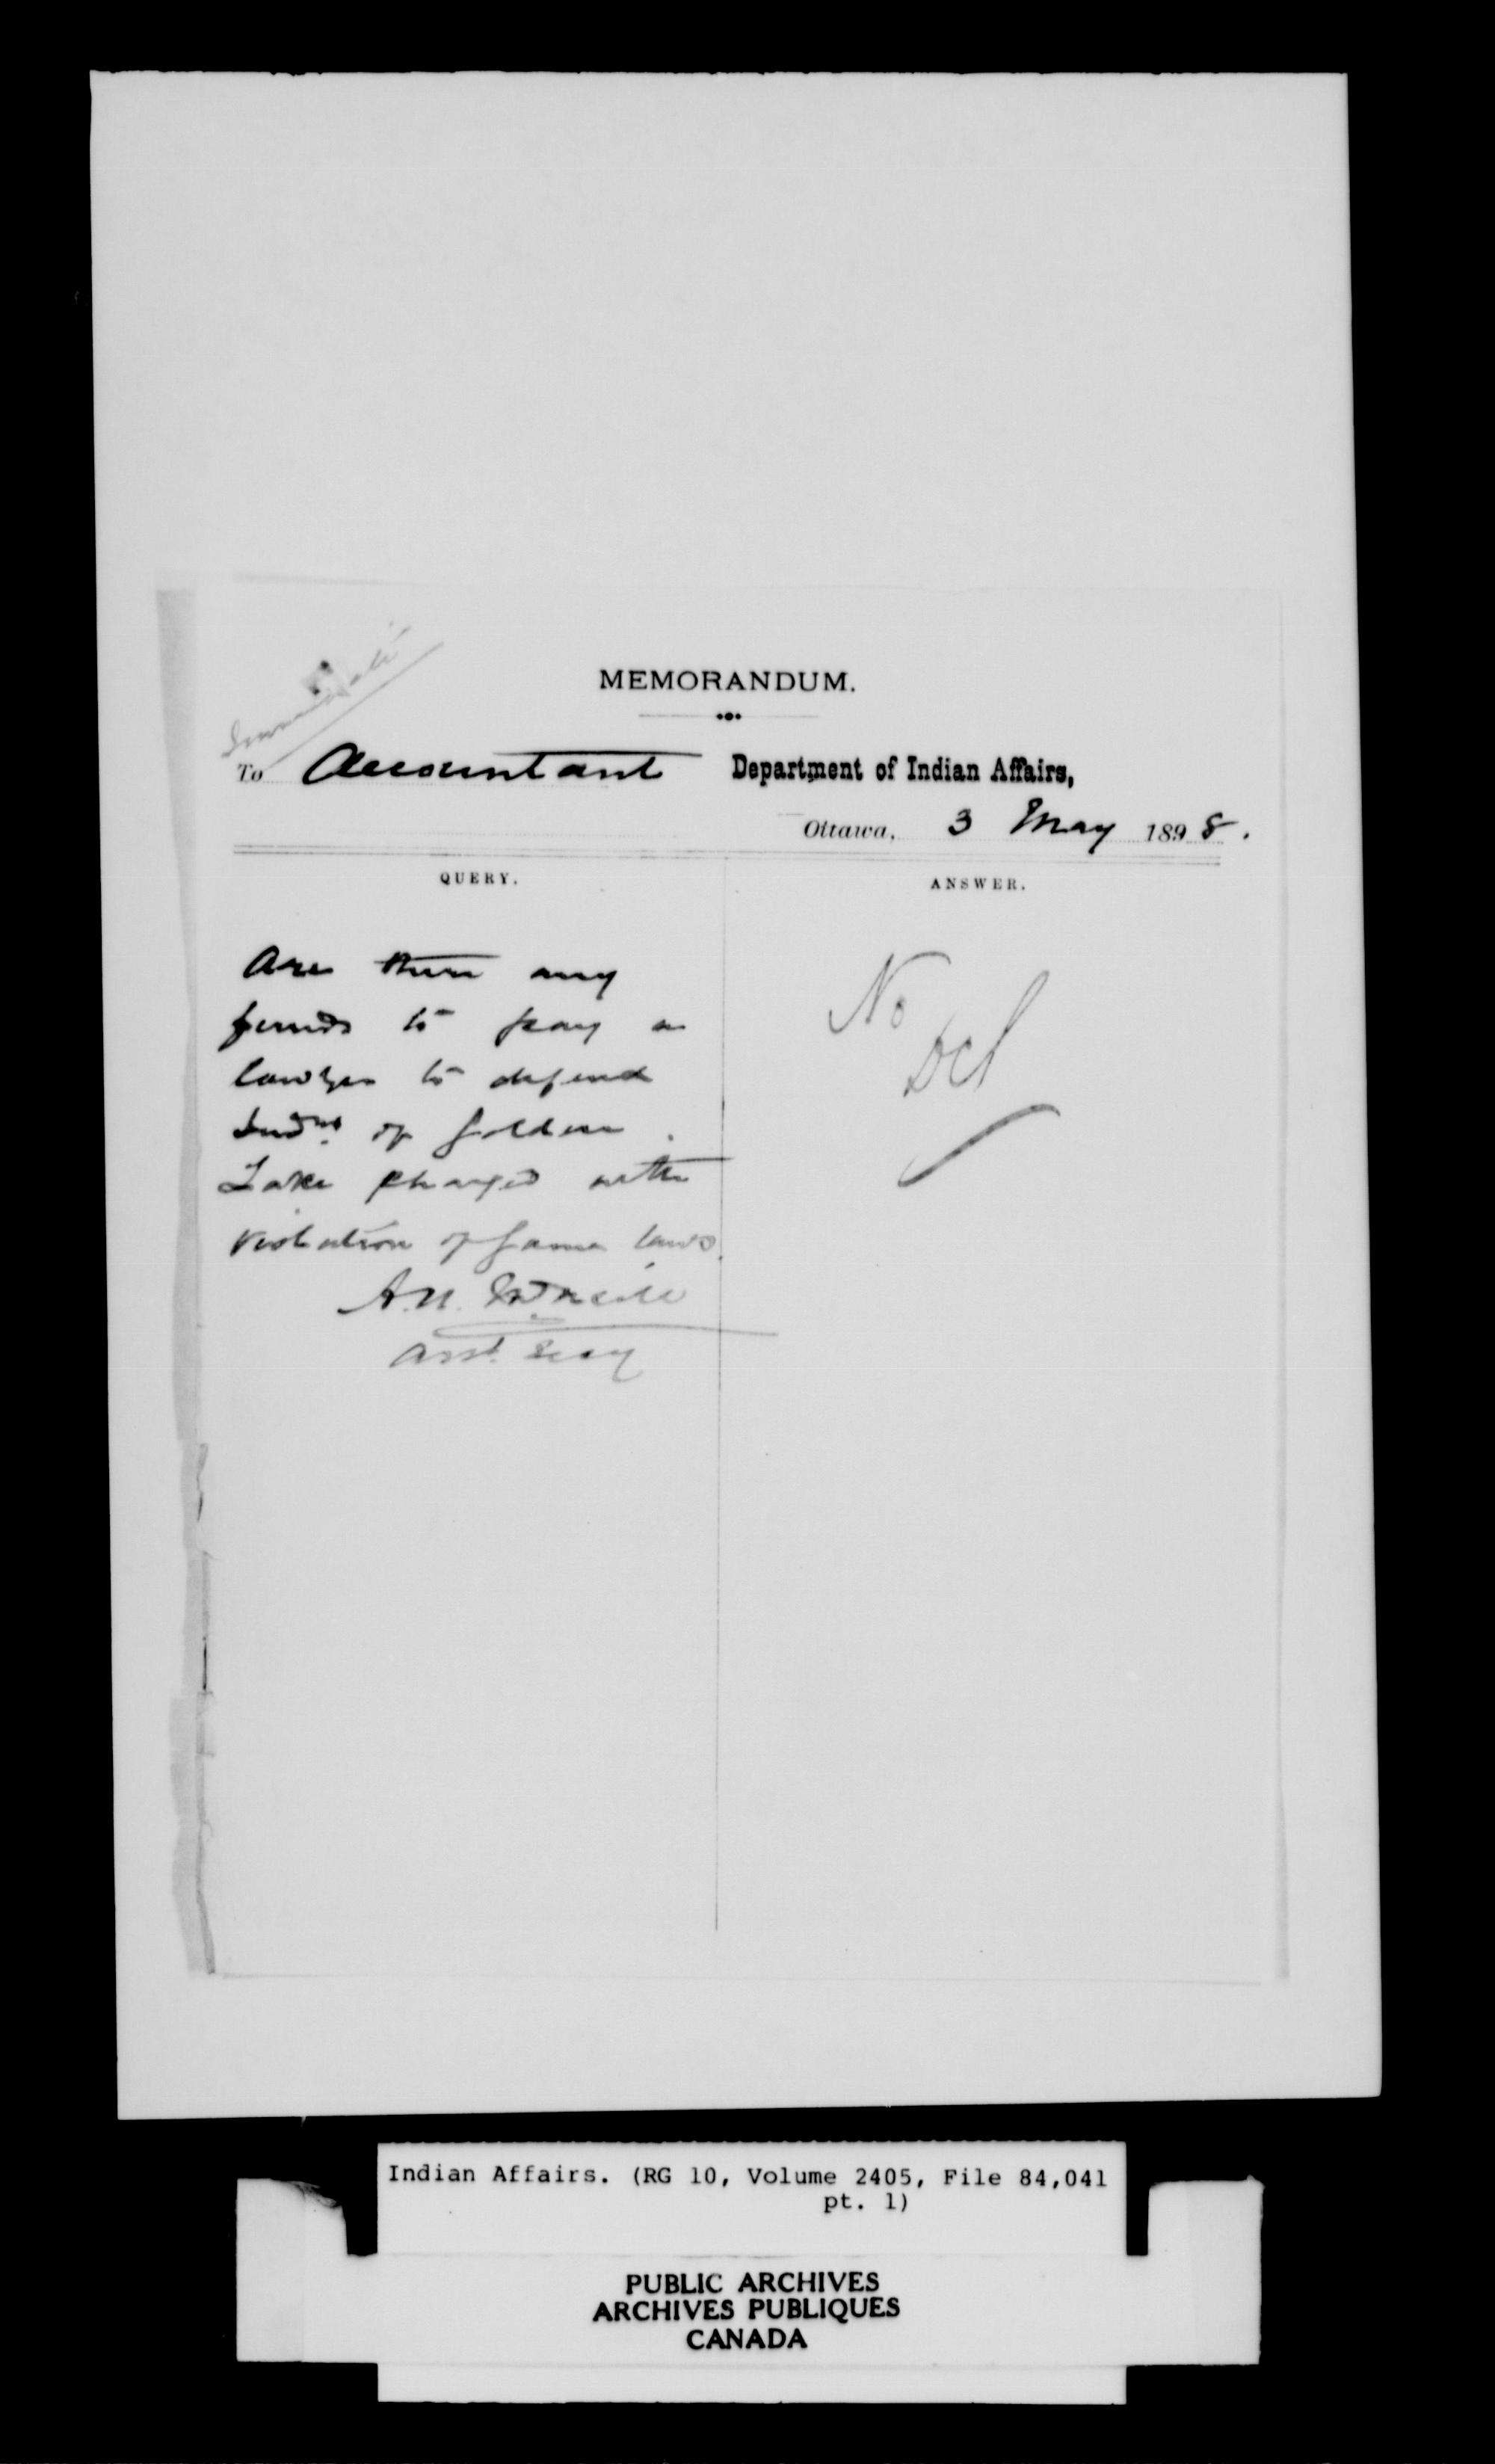 Immediate
MEMORANDUM.
To Accountant Department of Indian Affairs,
Ottawa, 3 May 1898.
QUERY.
ANSWER.
Are there any
funds to pay a
lawyer to defend
Indns. of Golden
Lake charged with
violation of game laws.
A.N. McNeill
Asst. Secy
No
DCS
Indian Affairs. (RG 10, Volume 2405, File 84,041
pt. 1)
PUBLIC ARCHIVES
ARCHIVES PUBLIQUES
CANADA